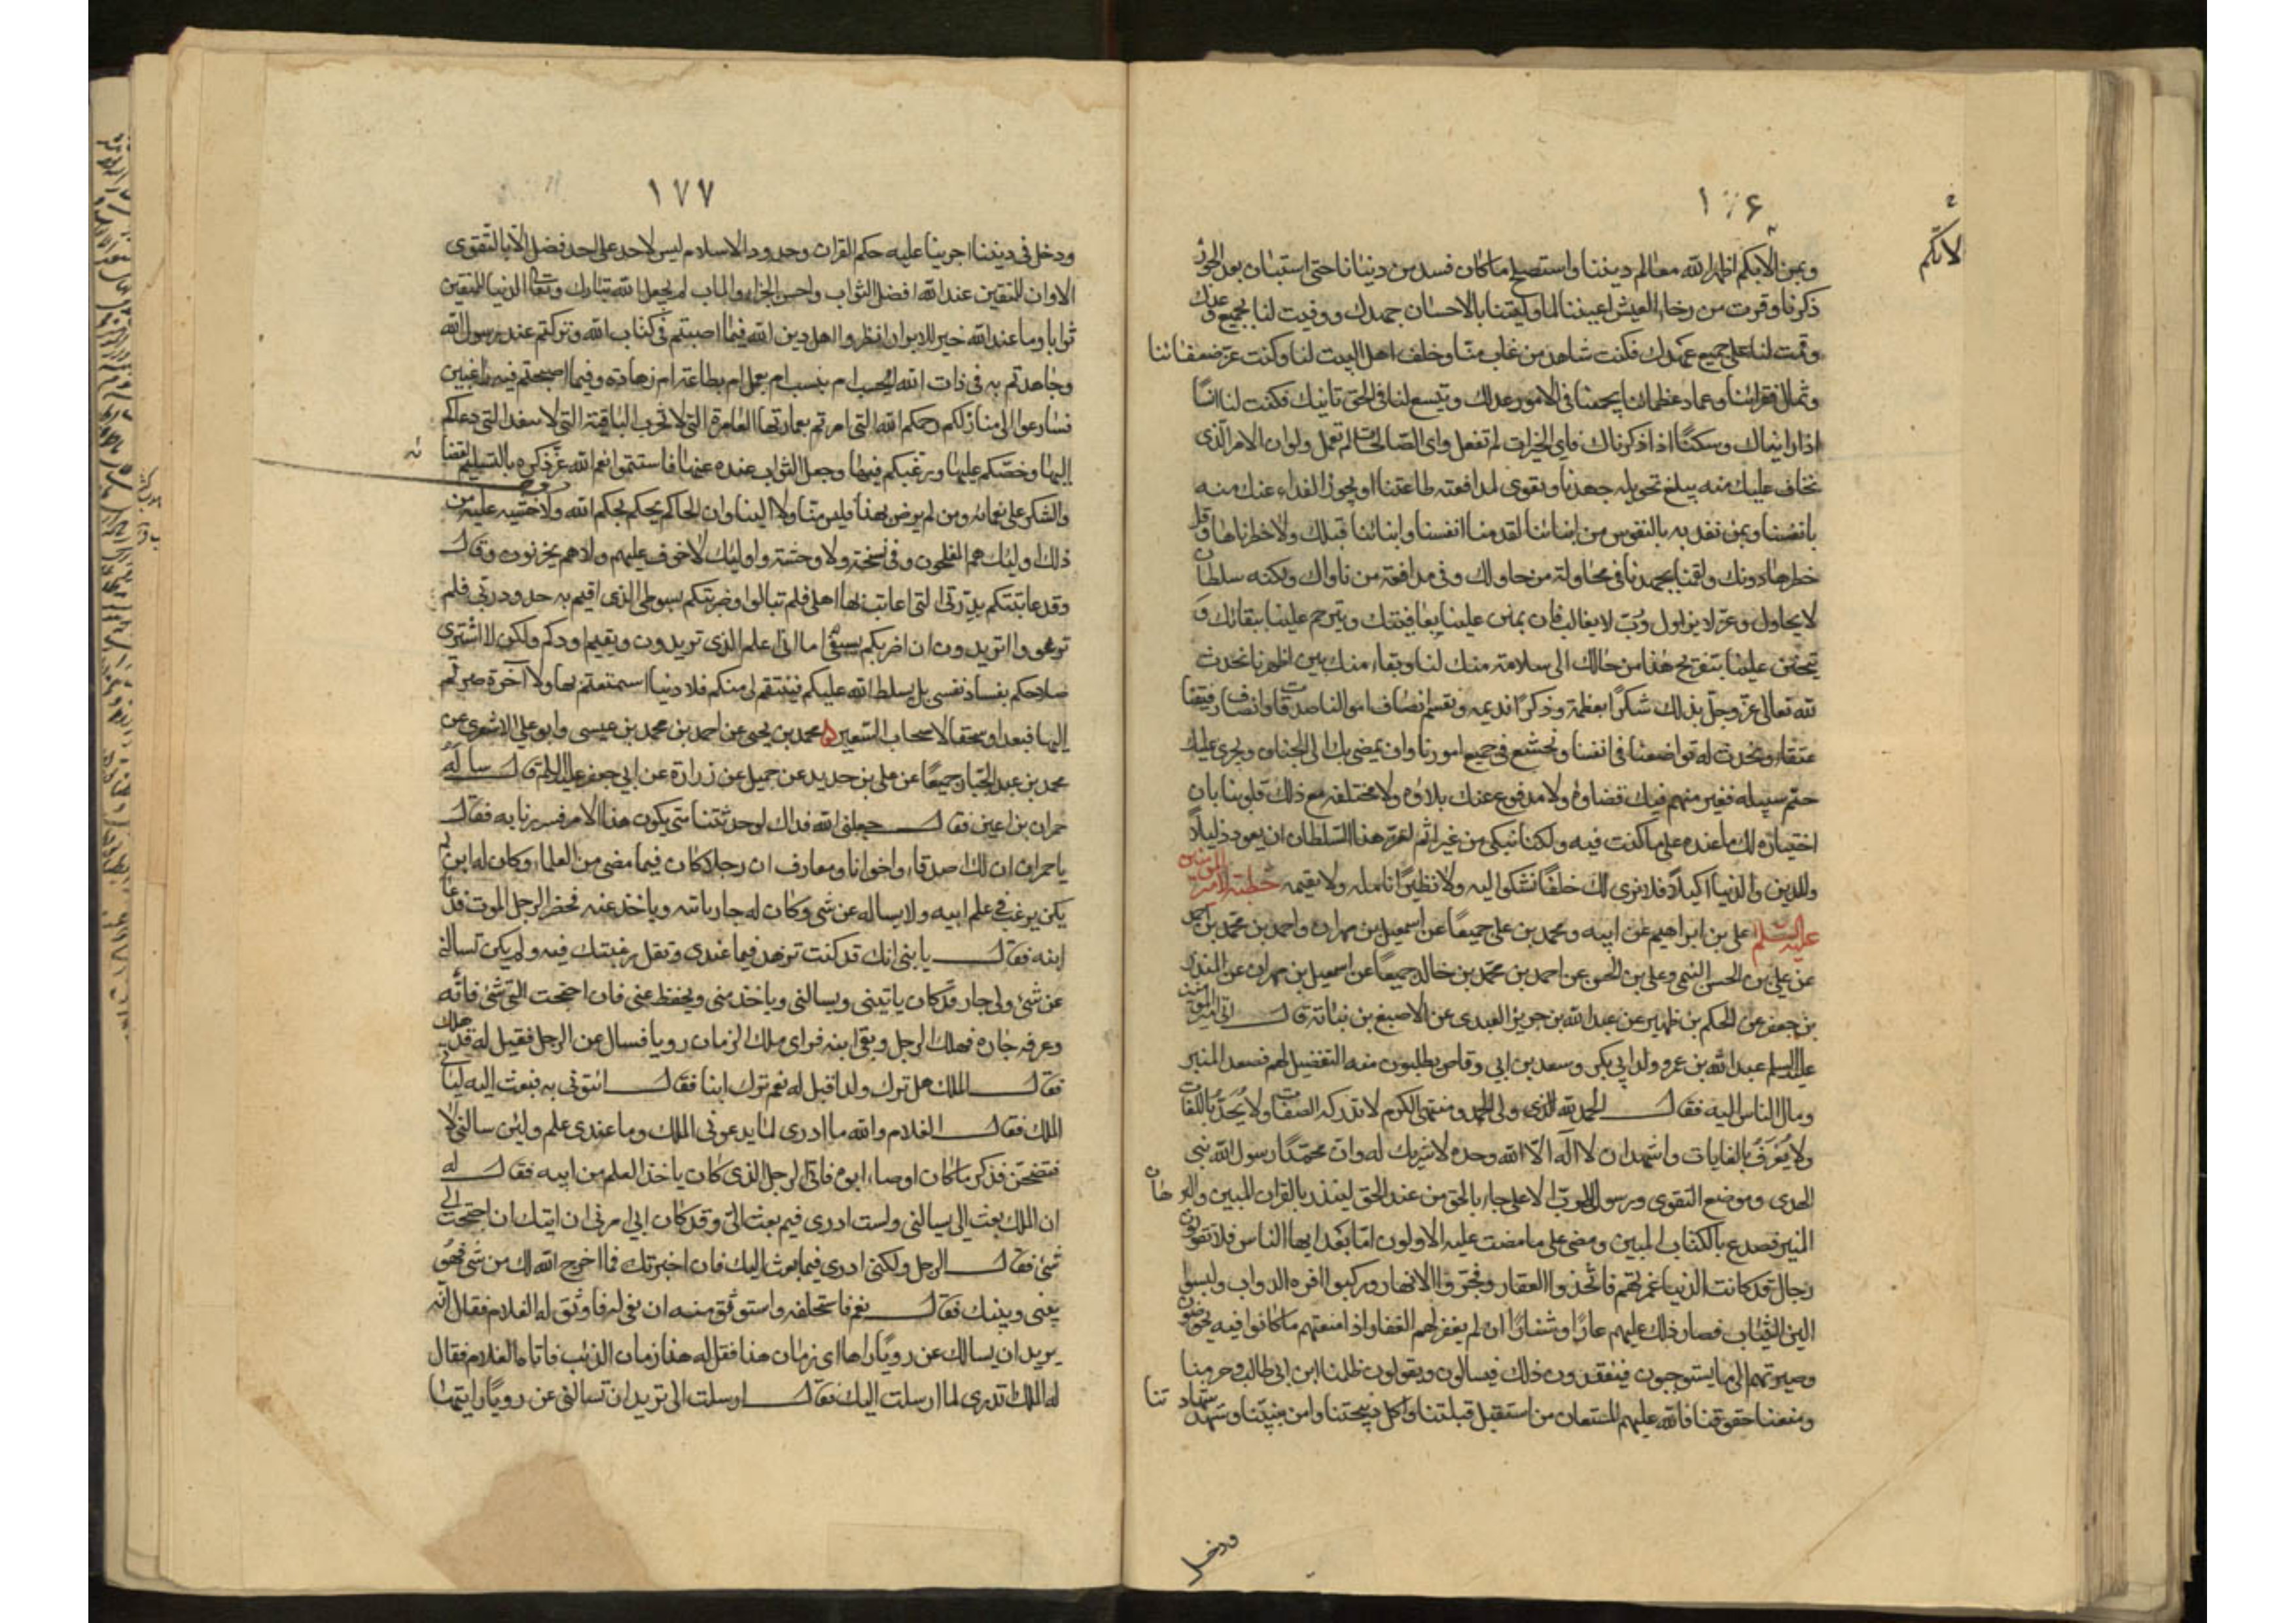 ١٧۶
لانكم
وبمن الابكم اظهر الله معالم ديننا واستصلح ما كان فسد من دنيانا حتى استبان بعد الجور
ذكرنا وقرت من رخاء العيش اعيننا لما وليتنا بالاحسان جهدك ووفيت لنا بجميع وعدك
وقمت لنا على جميع عهدك فكنت شاهد من غاب منا وخلف اهل البيت لنا وكنت عز ضعفائنا
وثمال فقرائنا وعماد عظمائنا يجمعنا فى الامور عدلك ويتسع لنا فى الحق تانيك فكنت لنا انسًا
اذا رايناك وسكنًا اذا ذكرناك فاى الخيرات لم تفعل واى الصالحات لم تعمل ولو ان الامر الذى
نخاف عليك منه يبلغ تحويله جهدنا وتقوى لمدافعته طاعتنا او يجوز الفداء عنك منه
بانفسنا وبمن نفديه بالنفوس من ابنائنا لقدمنا انفسنا وابنائنا قبلك ولاخطرناها وقل
خطرها دونك ولقمنا بجهدنا فى محاولة من حاولك وفى مدافعة من ناواك ولكنه سلطان
لا يحاول وعز لا يزاول ورب لا يغالب فان يمنن علينا بعافيتك ويترحم علينا ببقائك و
يتحنن علينا بتفريج هذا من حالك الى سلامة منك لنا وبقاء منك بين اظهرنا نحدث
لله تعالى عز وجل بذلك شكرًا بعظمه وذكرًا نديمه ونقسم انصاف اموالنا صدقات وانصاف رقيقنا
عتقاء ونحدث له تواضعنا فى انفسنا ونخشع فى جميع امورنا وان يمضى بك الى الجنان ويجرى عليك
حتم سبيله فغير متهم فيك قضاؤه ولا مدفوع عنك بلاؤه ولا مختلفة مع ذلك قلوبنا بان
اختياره لك ما عنده على ما كنت فيه ولكنا نبكى من غير اثم لعز هذا السلطان ان يعود ذليلًا
وللدين والدنيا اكيلًا فلا نرى لك خلفًا نشكوا اليه ولا نظيرًا نامله ولا نقيمه خطبة لامير المؤمنين
عليه السلم على بن ابراهيم عن ابيه ومحمد بن على جميعًا عن اسمعيل بن مهران واحمد بن محمد بن احمد
عن على بن الحسن التيمى وعلى بن الحسين عن احمد بن محمد بن خالد جميعًا عن اسمعيل بن مهران عن المنذر
بن جيفر عن الحكم بن ظهير عن عبد الله بن جرير العبدى عن الاصبغ بن نباتة قال اتى امير المؤمنين
عليه السلم عبد الله بن عمر وولد ابى بكر وسعد بن ابى وقاص يطلبون منه التفضيل لهم فصعد المنبر
ومال الناس اليه فقال الحمد لله الذى ولى الحمد ومنتهى الكرم لا تدركه الصفات ولا يُحَدّ باللغات
ولا يُعرَف بالغايات واشهد ان لا اله الا الله وحده لا شريك له وان محمدًا رسول الله نبى
الهدى وموضع التقوى ورسول الرب الاعلى جاء بالحق من عند الحق لينذر بالقران المبين والبرهان
المنير فصدع بالكتاب المبين ومضى على ما مضت عليه الاولون اما بعد ايها الناس فلا تقولن
رجال قد كانت الدنيا غمرتهم فاتخذوا العقار وفجروا الانهار وركبوا افره الدواب ولبسوا
الين الثياب فصار ذلك عليهم عارًا وشنارًا ان لم يغفر لهم الغفار اذا منعتهم ما كانوا فيه يخوضون
وصيرتهم الى ما يستوجبون فيفقدون ذلك فيسالون ويقولون ظلمنا ابن ابى طالب وحرمنا
ومنعنا حقوقنا فالله عليهم المستعان من استقبل قبلتنا واكل ذبيحتنا وامن بنبينا وشهد شهادتنا
ودخل
١٧٧
ودخل فى ديننا اجرينا عليه حكم القران وحدود الاسلام ليس لاحد على احد فضل الا بالتقوى
الا وان للمتقين عند الله افضل الثواب واحسن الجزاء والماب لم يجعل الله تبارك وتعالى الدنيا للمتقين
ثوابا وما عند الله خير للابرار انظروا اهل دين الله فيما اصبتم فى كتاب الله وتركتم عند رسول الله
وجاهدتم به فى ذات الله ابحسب ام بنسب ام بعمل ام بطاعة ام زهادة وفيما اصبحتم فيه راغبين
فسارعوا الى منازلكم رحمكم الله التى امرتم بعمارتها العامرة التى لا تخرب الباقية التى لا تنفد التى دعاكم
اليها وحضكم عليها ورغبكم فيها وجعل الثواب عنده عنها فاستتموا نعم الله عز ذكره بالتسليم لقضائه
والشكر على نعمائه ومن لم يرض بهذا فليس منا ولا الينا وان الحاكم يحكم بحكم الله ولا خشية عليه من
ذلك اوليك هم المفلحون وفى نسخة ولا وحشة واوليك لا خوف عليهم ولا هم يحزنون وقال
وقد عاتبتكم بدرتى التى اعاتب بها اهلى فلم تبالوا وضربتكم بسوطى الذى اقيم به حدود ربى فلم
ترعووا اتريدون ان اضربكم بسيفى اما انى اعلم الذى تريدون ويقيم اودكم ولكن لا اشترى
صلاحكم بفساد نفسى بل يسلط الله عليكم فينتقم لى منكم فلا دنيا استمتعتم بها ولا آخرة صرتم
اليها فبعدا وسحقا لاصحاب السعير محمد بن يحيى عن احمد بن محمد بن عيسى وابو على الاشعرى عن
محمد بن عبد الجبار جميعًا عن على بن حديد عن جميل عن زرارة عن ابى جعفر عليه السلم قال ساله
حمران بن اعين فقال جعلنى الله فداك لو حدثتنا متى يكون هذا الامر فسررنا به فقال
يا حمران ان لك اصدقاء واخوانا ومعارف ان رجلا كان فيما مضى من العلماء وكان له ابن لم
يكن يرغب فى علم ابيه ولا يساله عن شى وكان له جار ياتيه وياخذ عنه فحضر الرجل الموت فدعا
ابنه فقال يا بنى انك قد كنت تزهد فيما عندى وتقل رغبتك فيه ولم يكن تسالنى
عن شئ ولى جار قد كان ياتينى ويسالنى وياخذ منى ويحفظ عنى فان احتجت الى شئ فاته
وعرفه جاره فهلك الرجل وبقى ابنه فراى ملك الزمان رويا فسال عن الرجل فقيل له قد هلك
فقال الملك هل ترك ولدا فقيل له نعم ترك ابنا فقال ائتونى به فبعث اليه لياتى
الملك فقال الغلام والله ما ادرى لما يدعونى الملك وما عندى علم ولئن سالنى لا
فتضحن فذكر ما كان اوصاه ابوه فاتى الرجل الذى كان ياخذ العلم من ابيه فقال له
ان الملك بعث الى يسالنى ولست ادرى فيم بعث الى وقد كان ابى امرنى ان اتيك ان احتجت الى
شئ فقال الرجل ولكنى ادرى فيما بعث اليك فان اخبرتك فما اخرج الله لك من شى فهو
بينى وبينك فقال نعم فاستحلفه واستوثق منه ان يفى له فاوثق له الغلام فقال انه
يريد ان يسالك عن رويا راها اى زمان هذا فقل له هذا زمان الذئب فاتاه الغلام فقال
له الملك تدرى لما ارسلت اليك فقال ارسلت الى تريد ان تسالنى عن رويا رايتها